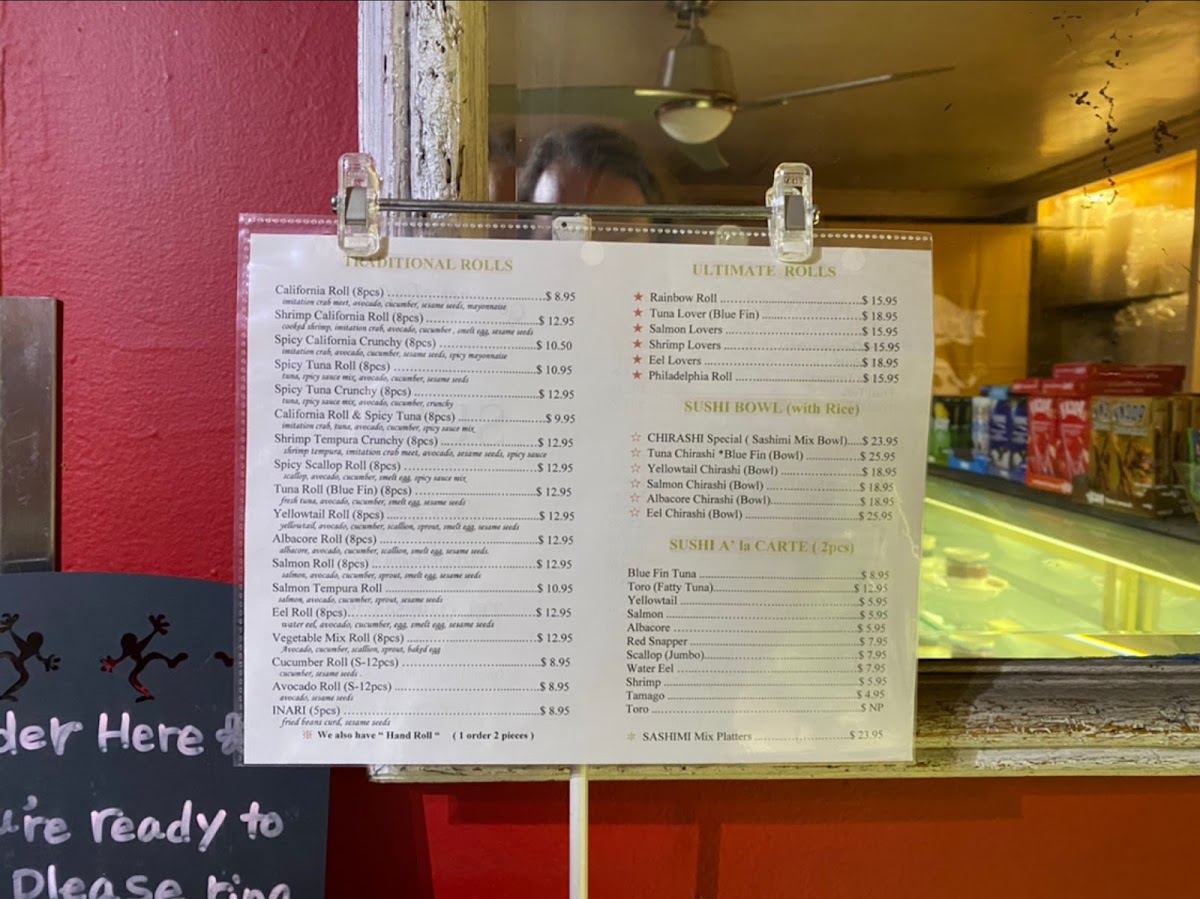 TRADITIONAL ROLLS
California Roll (8pcs) ........ $ 8.95
imitation crab meet, avocado, cucumber, sesame seeds, mayonnaise
Shrimp California Roll (8pcs) ........ $ 12.95
cooked shrimp, imitation crab, avocado, cucumber , smelt egg, sesame seeds
Spicy California Crunchy (8pc) ........ $ 10.50
imitation crab, avocado, cucumber, sesame seeds, spicy mayonnaise
Spicy Tuna Roll (8pcs) ........ $ 10.95
tuna, spicy sauce mix, avocado, cucumber, sesame seeds
Spicy Tuna Crunchy (8pcs) ........ $ 12.95
tuna, spicy sauce mix, avocado, cucumber, crunchy
California Roll & Spicy Tuna (8pcs) ........ $ 9.95
imitation crab, tuna, avocado, cucumber, spicy sauce mix
Shrimp Tempura Crunchy (8pcs) ........ $ 12.95
shrimp tempura, imitation crab meet, avocado, sesame seeds, spicy sauce
Spicy Scallop Roll (8pcs) ........ $ 12.95
scallop, avocado, cucumber, smelt egg, spicy sauce mix
Tuna Roll (Blue Fin) (8pcs) ........ $ 12.95
fresh tuna, avocado, cucumber, smelt egg, sesame seeds
Yellowtail Roll (8pcs) ........ $ 12.95
yellowtail, avocado, cucumber, scallion, sprout, smelt egg, sesame seeds
Albacore Roll (8pcs) ........ $ 12.95
albacore, avocado, cucumber, scallion, smelt egg, sesame seeds.
Salmon Roll (8pcs) ........ $ 12.95
salmon, avocado, cucumber, sprout, smelt egg, sesame seeds
Salmon Tempura Roll ........ $ 10.95
salmon, avocado, cucumber, sprout, sesame seeds
Eel Roll (8pcs) ........ $ 12.95
water eel, avocado, cucumber, egg, smelt egg, sesame seeds
Vegetable Mix Roll (8pcs) ........ $ 12.95
Avocado, cucumber, scallion, sprout, baked egg
Cucumber Roll (S-12pcs) ........ $ 8.95
cucumber, sesame seeds .
Avocado Roll (S-12pcs) ........ $ 8.95
avocado, sesame seeds
INARI (5pcs) ........ $ 8.95
fried beans curd, sesame seeds
※ We also have " Hand Roll " ( 1 order 2 pieces )
ULTIMATE ROLLS
★ Rainbow Roll ........ $ 15.95
★ Tuna Lover (Blue Fin) ........ $ 18.95
★ Salmon Lovers ........ $ 15.95
★ Shrimp Lovers ........ $ 15.95
★ Eel Lovers ........ $ 18.95
★ Philadelphia Roll ........ $ 15.95
SUSHI BOWL (with Rice)
☆ CHIRASHI Special ( Sashimi Mix Bowl)..... $ 23.95
☆ Tuna Chirashi *Blue Fin (Bowl) ........ $ 25.95
☆ Yellowtail Chirashi (Bowl) ........ $ 18.95
☆ Salmon Chirashi (Bowl) ........ $ 18.95
☆ Albacore Chirashi (Bowl)........ $ 18.95
☆ Eel Chirashi (Bowl) ........ $ 25.95
SUSHI A' la CARTE ( 2pcs)
Blue Fin Tuna ........ $ 8.95
Toro (Fatty Tuna)........ $ 12.95
Yellowtail ........ $ 5.95
Salmon ........ $ 5.95
Albacore ........ $ 5.95
Red Snapper ........ $ 7.95
Scallop (Jumbo)........ $ 7.95
Water Eel ........ $ 7.95
Shrimp ........ $ 5.95
Tamago ........ $ 4.95
Toro ........ $ NP
✳ SASHIMI Mix Platters ........ $ 23.95
der Here &
u're ready to
Please ring